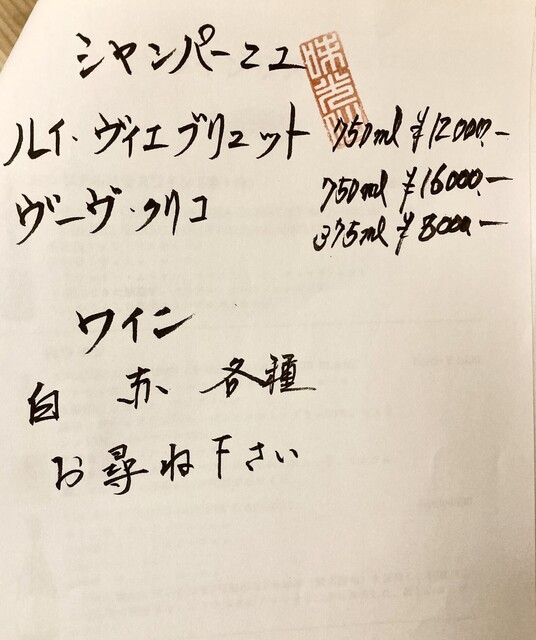 シャンパーニュ
ルイ・ヴィエ ブリュット 750ml ¥12000.-
ヴーヴ・クリコ 750ml ¥16000.-
375ml ¥8000-
ワイン
白 赤 各種
お尋ね下さい